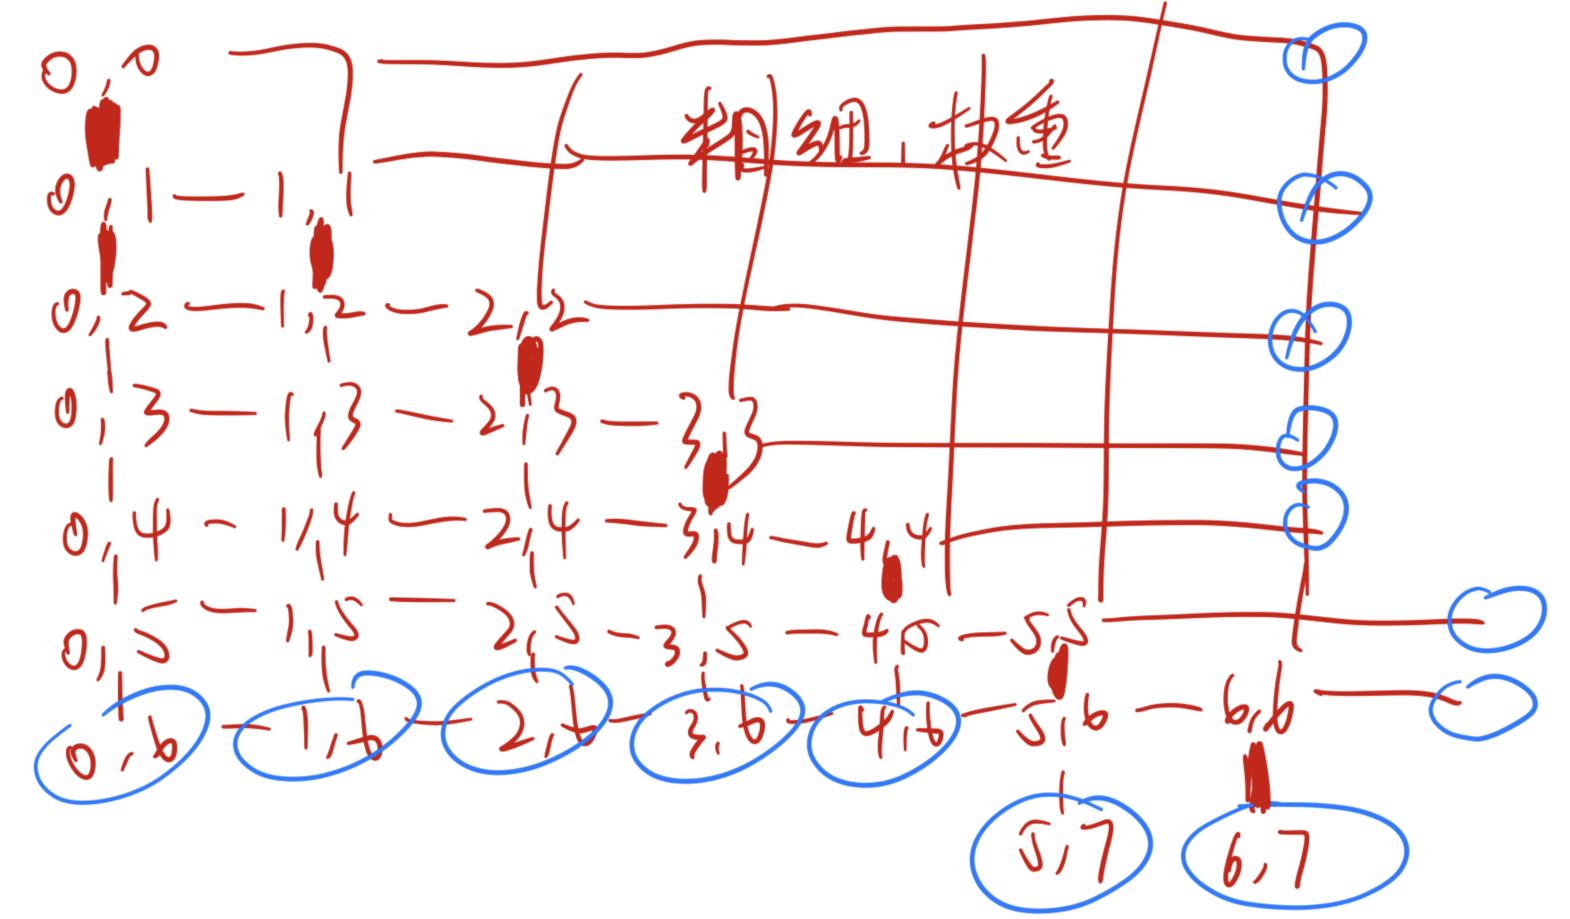 0,0
粗细,权重
0,1 1,1
0,2 1,2 2,2
0,3 1,3 2,3 3,3
0,4 1,4 2,4 3,4 4,4
0,5 1,5 2,5 3,5 4,5 5,5
0,6 1,6 2,6 3,6 4,6 5,6 6,6
5,7 6,7